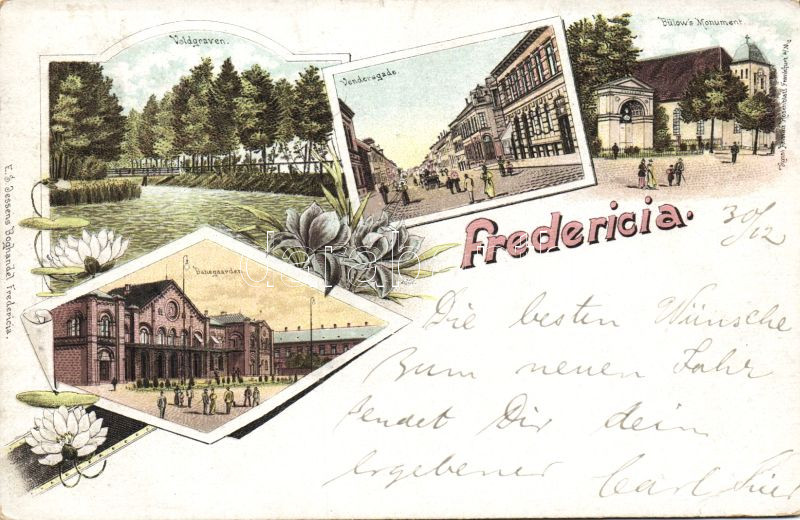 Voldgraven.
Vendersgade.
Bülow's Monument.
Fredericia.
30/12
Die besten Wünsche
zum neuen Jahr
sendet Dir dein
ergebener Carl
E. S. Jessens Boghandel Fredericia.
Banegaarden.